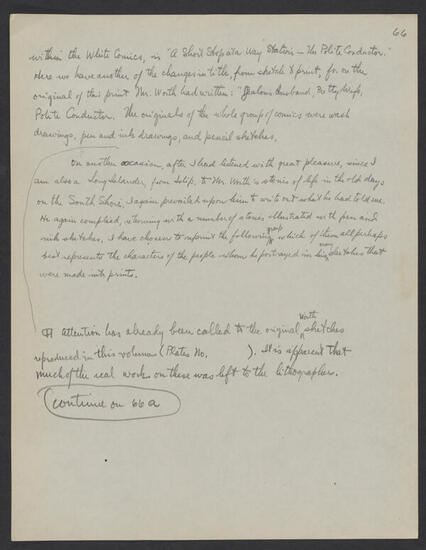 66
within the White Comics, is "A Short Stop at a Way Station – The Polite Conductor."
Here we have another of the changes in title, from sketch to print, for on the
original of this print Mr. Worth had written: "Jealous Husband, Pretty Wife,
Polite Conductor. The originals of the whole group of comics were wash
drawings, pen and ink drawings, and pencil sketches.
On another occasion, after I had listened with great pleasure, since I
am also a Long Islander, from Islip, to Mr. Worth's stories of life in the old days
on the South Shore, I again prevailed upon him to write out what he had told me.
He again complied, returning with a number of stories illustrated with pen and
ink sketches. I have chosen to reprint the following group which of them all perhaps
best represents the characters of the people whom he portrayed in his many sketches that
were made into prints.
¶ Attention has already been called to the original Worth sketches
reproduced in this volume (Plates No. ). It is apparent that
much of the real work on these was left to the lithographer.
Continue on 66a